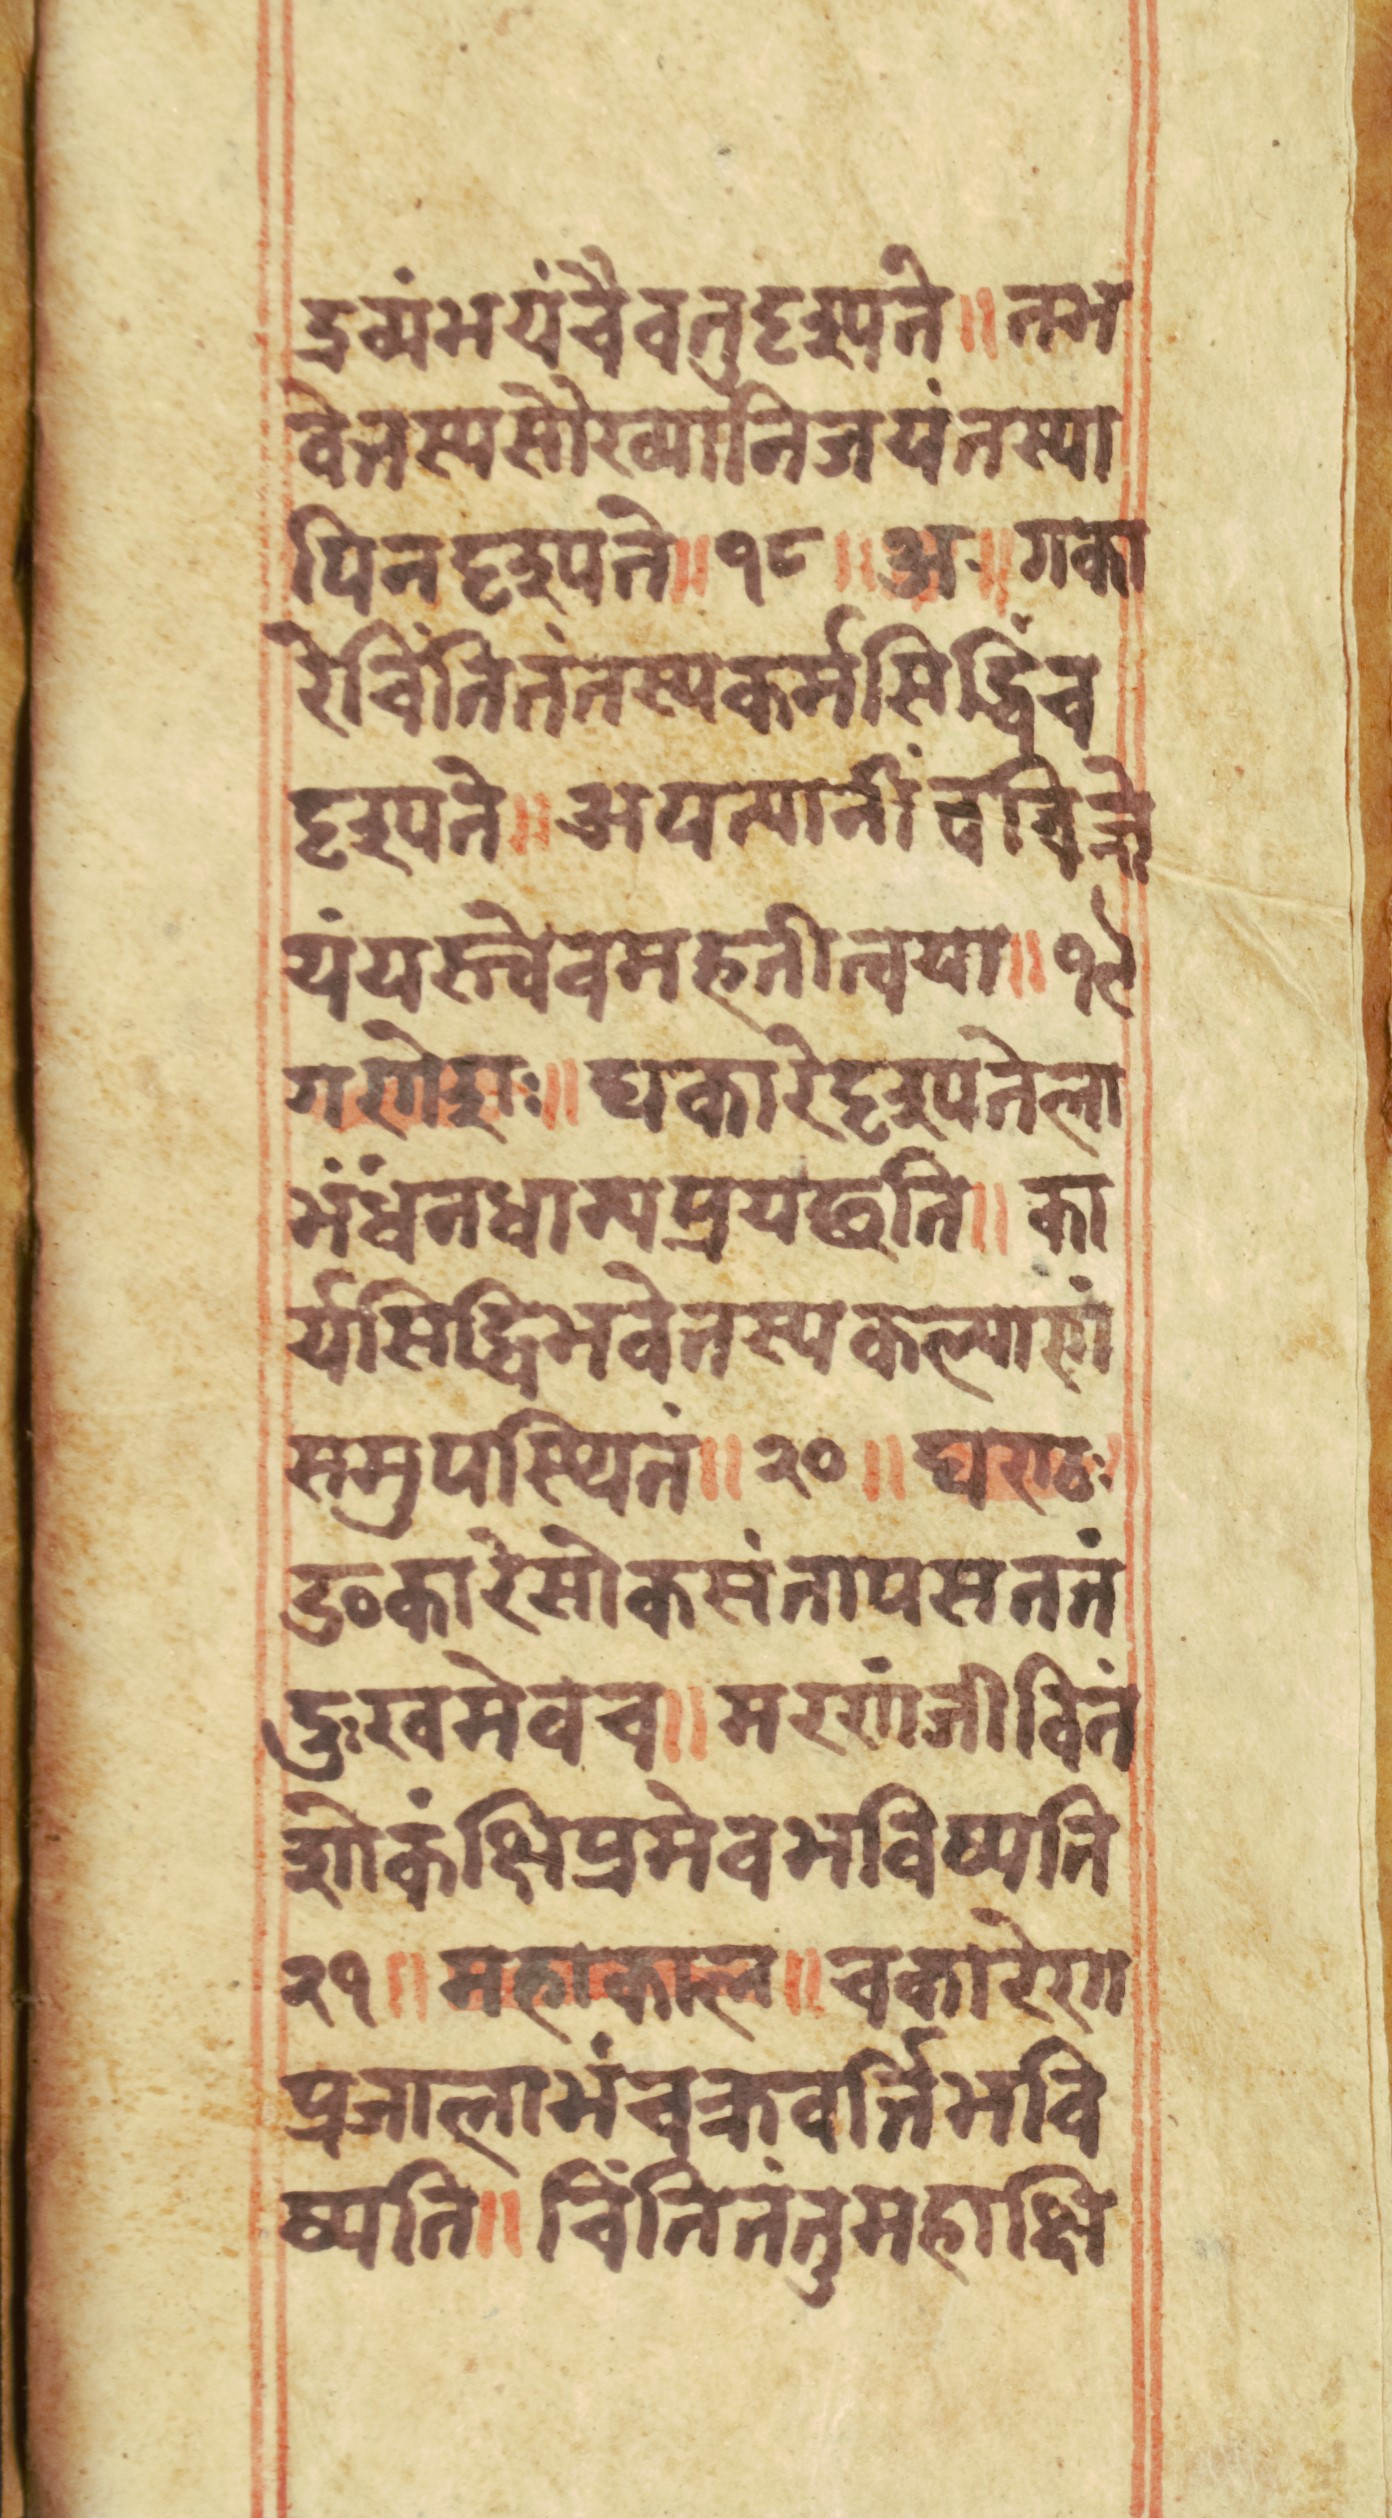 द्रव्यंभयंचैवतुदृश्यते॥नभ
वेतस्यसौख्यानिजयंतस्या
पिनदृश्यते॥१८॥अ॰॥गका
रेचिंतितंतस्यकर्मसिद्धिंच
दृश्यते॥अपत्यानां
यंयस्त्वेवमहतीत्वया॥१९
गणेशः॥घकारेदृश्यतेला
भंधंनधान्यप्रयछति॥का
र्यसिद्धिभवेतस्यकल्याणं
समुपस्थितं॥२०॥घण्टः
ङकारेसोकसंतापसततं
दुःखमेवच॥मरणंजीवितं
शोकंक्षिप्रमेवभविष्यति
२१॥महाकाल॥चकारेरा
प्रजालाभंचक्रवर्त्तिभवि
ष्यति॥चिंतितंतुमहाक्षि